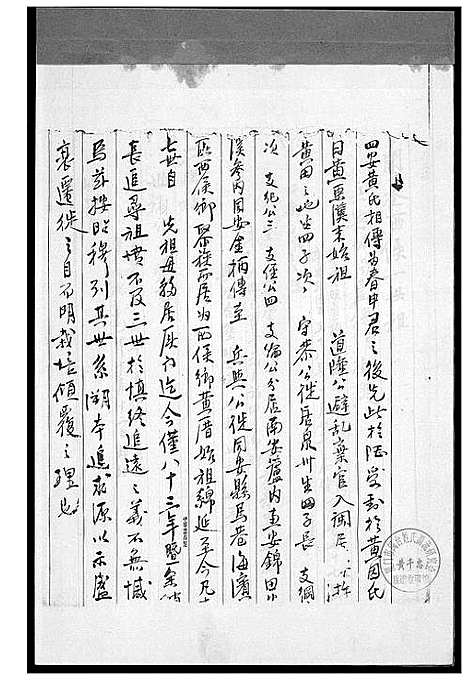 四安黄氏相傳為春申君之後先此於陸 於黄因氏
曰黄東漢末始祖 道隆公避乱棄官入閩居
黄田之地生四子次 守恭公徙居泉州生四子長 支綱
次 支紀公三 支經公四 支倫公分居南安蘆内惠安錦田
溪參内同安金柄傳至 兵興公徙同安縣馬巷海濱
區西侯鄉聚族而居為西侯鄉黄厝始祖綿延至今凡
七世自 先祖母移居厦門迄今僅八十三年暨
長進尋祖墳不及三世於慎終追遠之義不無憾
焉茲按昭穆列其世系溯本追求源以示盛
衰遷徙之自而明栽培傾覆之理也